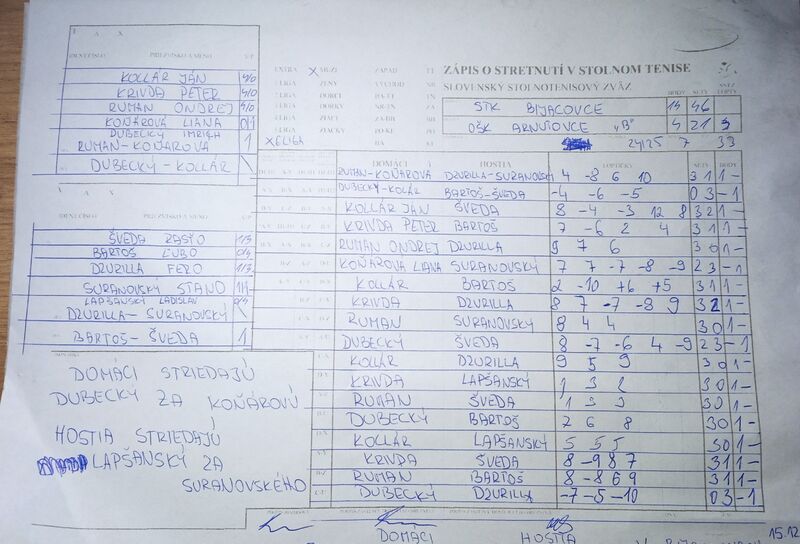 I A X
IDENT.ČÍSLO PRIEZVISKO A MENO V/P
KOLLÁR JÁN 4/0
KRIVDA PETER 4/0
RUMAN ONDREJ 4/0
KOŇÁROVÁ LIANA 0/1
DUBECKÝ IMRICH
RUMAN-KOŇAROVÁ 1
DUBECKÝ-KOLLÁR
EXTRA X MUŽI ZÁPAD
ŽENY VÝCHOD
X ELIGA
ZÁPIS O STRETNUTÍ V STOLNOM TENISE
SLOVENSKÝ STOLNOTENISOVÝ ZVÄZ
BODY SETY
STK BIJACOVCE 14 46
OŠK ARNUTOVCE "B" 4 21 3
24/25 7 33
DOMÁCI HOSTIA LOPTIČKY SETY BODY
RUMAN-KOŇÁROVÁ DZURILLA-SURANOVSKÝ 4 -8 6 10 3 1 1 -
DUBECKÝ-KOLÁR BARTOŠ-ŠVEDA -4 -6 -5 0 3 - 1
KOLLÁR JÁN ŠVEDA 8 -4 -3 12 8 3 2 1 -
KRIVDA PETER BARTOŠ 7 -6 2 4 3 1 1 -
RUMAN ONDREJ DZURILLA 9 7 6 3 0 1 -
KOŇÁROVÁ LIANA SURANOVSKÝ 7 7 -7 -8 -9 2 3 - 1
KOLLÁR BARTOŠ 2 -10 +6 +5 3 1 1 -
KRIVDA DZURILLA 8 7 -7 -8 9 3 2 1 -
RUMAN SURANOVSKÝ 8 4 4 3 0 1 -
DUBECKÝ ŠVEDA 8 -7 -6 4 -9 2 3 - 1
KOLLÁR DZURILLA 9 5 9 3 0 1 -
KRIVDA LAPŠANSKÝ 1 3 2 3 0 1 -
RUMAN ŠVEDA 1 3 3 3 0 1 -
DUBECKÝ BARTOŠ 2 6 8 3 0 1 -
KOLLÁR LAPŠANSKÝ 5 5 5 3 0 1 -
KRIVDA ŠVEDA 8 -9 8 7 3 1 1 -
RUMAN BARTOŠ 8 -8 6 9 3 1 1 -
DUBECKÝ DZURILLA -7 -5 -10 0 3 - 1
A X
IDENT.ČÍSLO PRIEZVISKO A MENO V/P
ŠVEDA RASŤO 1/3
BARTOŠ ĽUBO 0/4
DZURILLA FERO 1/3
SURANOVSKÝ STANO 1/1
LAPŠANSKÝ LADISLAV
DZURILLA-SURANOVSKÝ
BARTOŠ-ŠVEDA 1
DOMACI STRIEDAJÚ
DUBECKÝ ZA KOŇÁROVÚ
HOSTIA STRIEDAJÚ
LAPŠANSKÝ ZA
SURANOVSKÉHO
DOMACI HOSTIA
15.12